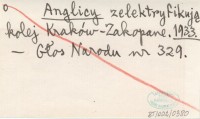 Anglicy zelektryfikują
kolej Kraków-Zakopane. 1933.
— Głos Narodu nr 329.